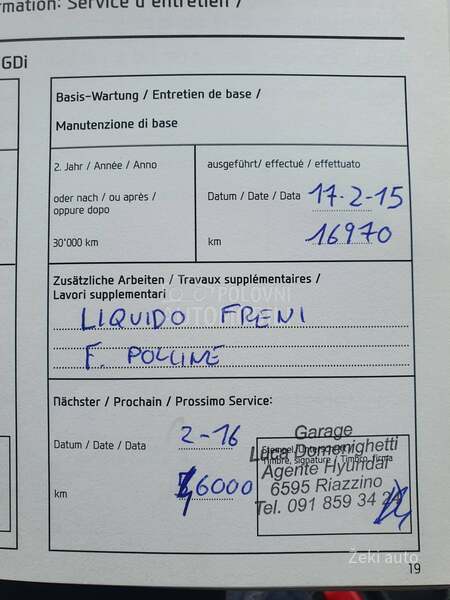 rmation: Service d'entretien /
GDi
Basis-Wartung / Entretien de base /
Manutenzione di base
2. Jahr / Année / Anno
oder nach / ou après /
oppure dopo
30'000 km
ausgeführt/ effectué / effettuato
Datum / Date / Data 17-2-15
km 16970
Zusätzliche Arbeiten / Travaux supplémentaires /
Lavori supplementari
POLOVNI
LIQUIDO FRENI
F. POLLINE
Nächster / Prochain / Prossimo Service:
Datum / Date / Data 2-16
km 6000
Garage
Luca Domenighetti
Timbre, signature / Timbro, firma
Agente Hyundai
6595 Riazzino
Tel. 091 859 34 2
Zeki auto
19